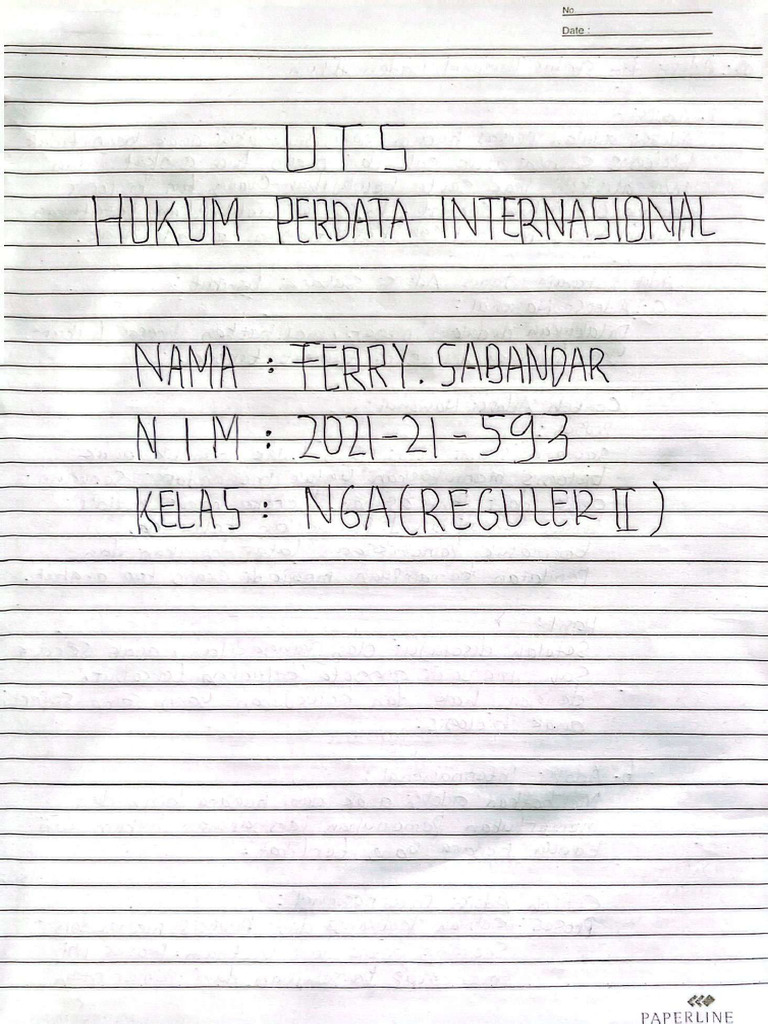 No
Date :
UTS
HUKUM PERDATA INTERNASIONAL
NAMA : FERRY. SABANDAR
NIM : 2021-21-593
KELAS : NGA (REGULER II)
PAPERLINE